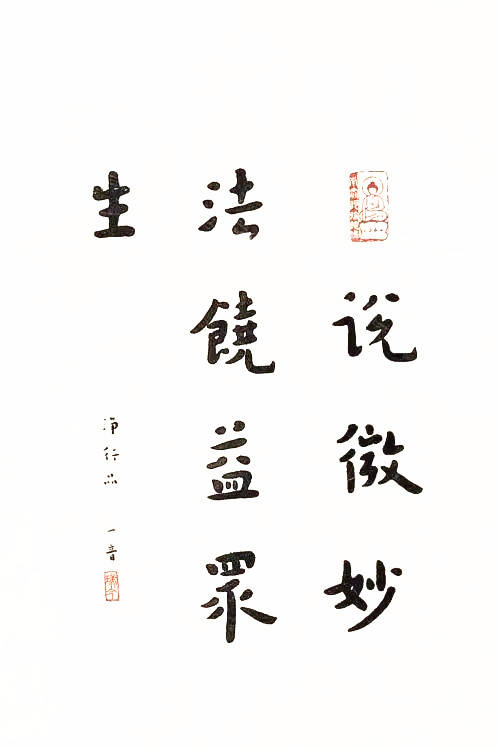 説微妙
法饒益眾
生
淨行品 一音